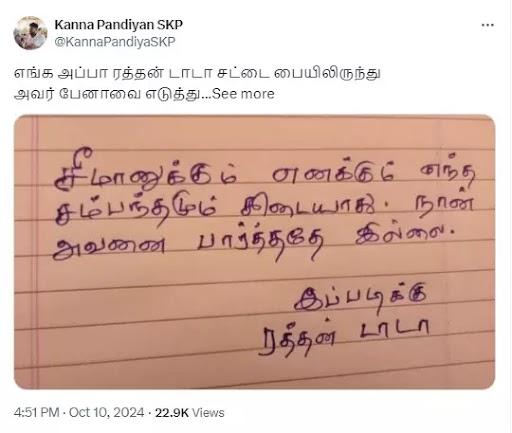 Kanna Pandiyan SKP
@KannaPandiyaSKP
எங்க அப்பா ரத்தன் டாடா சட்டை பையிலிருந்து
அவர் பேனாவை எடுத்து...See more
சீமானுக்கும் எனக்கும் எந்த
சம்பந்தமும் கிடையாது. நான்
அவனை பார்த்ததே இல்லை.
இப்படிக்கு
ரத்தன் டாடா
4:51 PM · Oct 10, 2024 · 22.9K Views